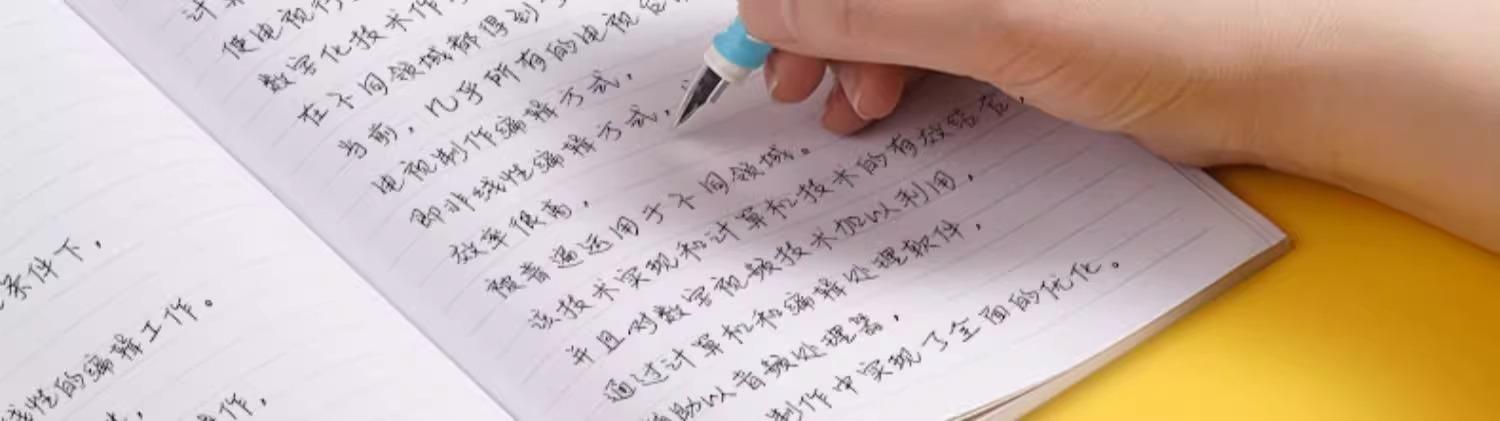 条件下，
线性的编辑工作。
作，
计算
使电视制
数字化技术作
在不同领域都得到
当前，几乎所有的电视台
电视制作编辑方式，
即非线性编辑方式，
效率很高，
被普遍运用于不同领域。
该技术实现和计算机技术的有效结合，
并且对数字视频技术加以利用，
通过计算机和编辑处理软件，
辅助以音频处理器，
制作中实现了全面的优化。